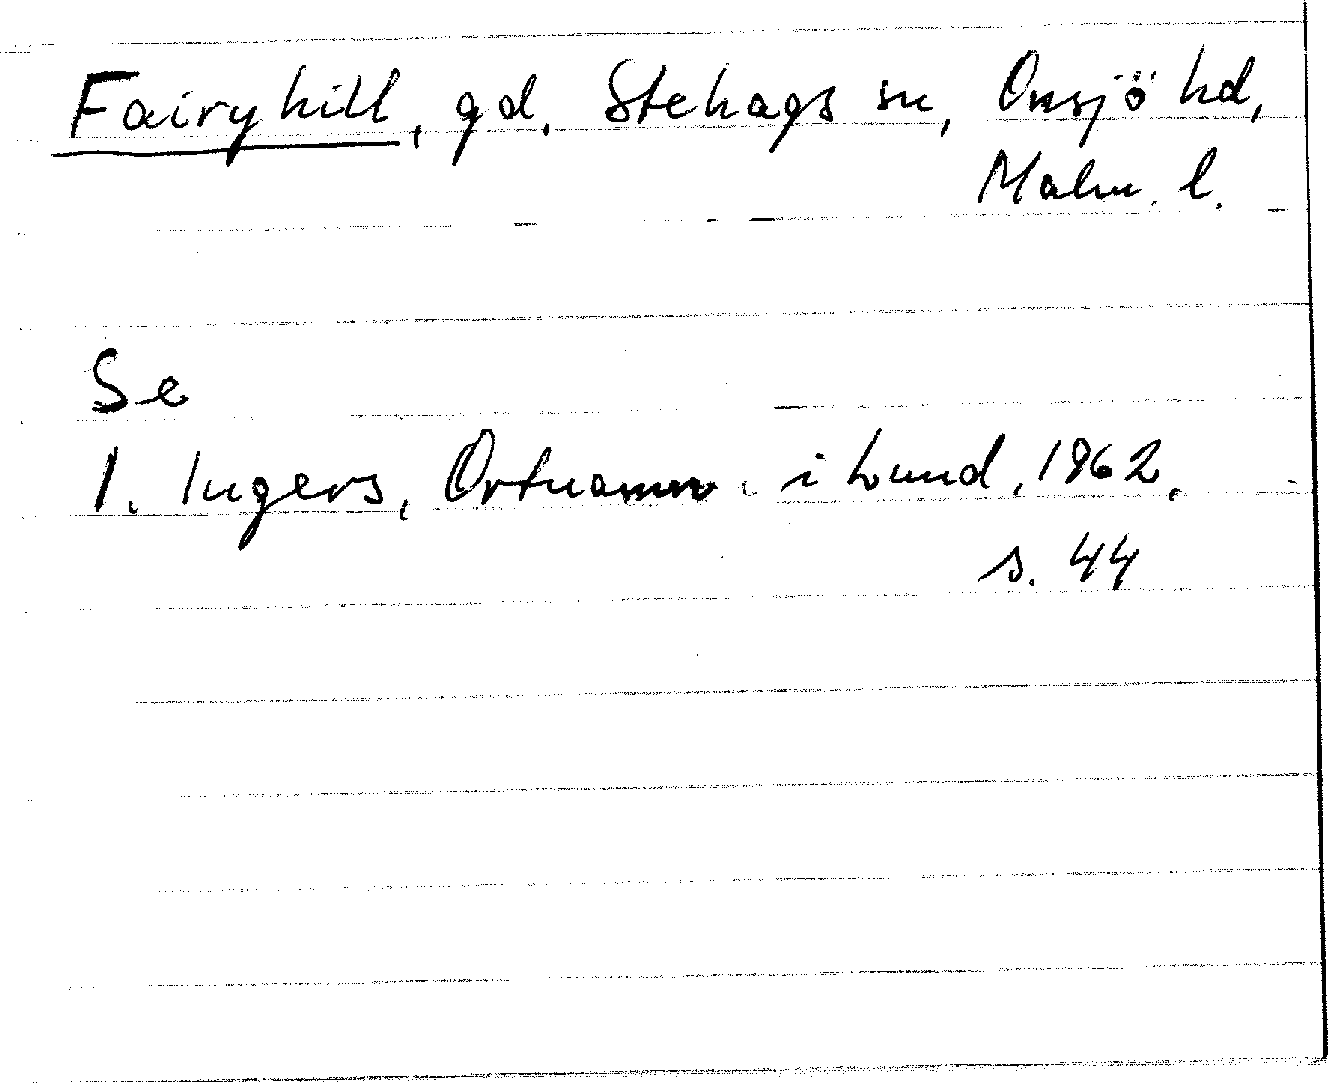 Fairyhill, gd, Stehags sn, Onsjö hd,
Malm. l.
Se
I. Ingers, Ortnamn i Lund, 1962,
s. 44